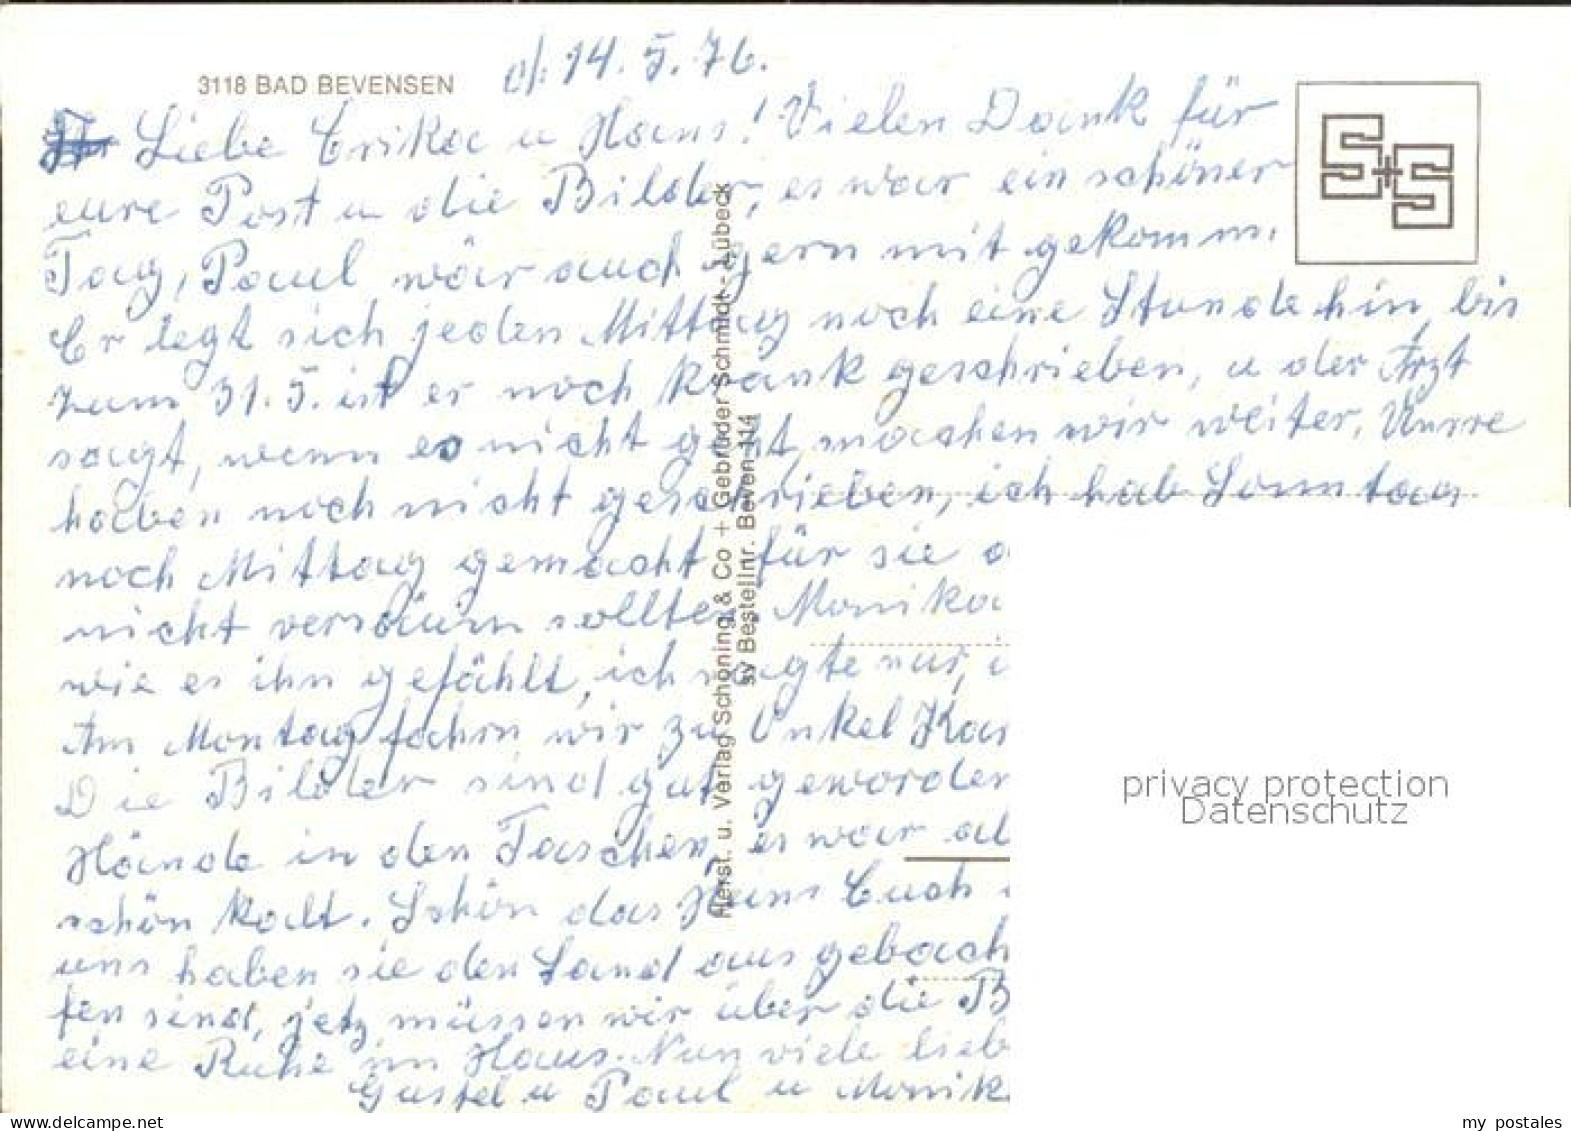 3118 BAD BEVENSEN
d. 14. 5. 76.
Liebe Erika u Hans! Vielen Dank für
eure Post u die Bilder, es war ein schöner
Tag, Paul wär auch gern mit gekomm.
Er legt sich jeden Mittag noch eine Stunde hin, bis
zum 31. 5. ist er noch krank geschrieben, u der Arzt
sagt, wenn es nicht geht, machen wir weiter. Unsre
haben noch nicht geschrieben, ich hab Sonntag
noch Mittag gemacht für sie
nicht versäum sollten. Monika
wie es ihn gefählt, ich sagte nur,
Am Montag fahrn wir zu Onkel
Die Bilder sind gut geworden
Hände in den Taschen, es war
schön kalt. Schön das Hans Euch
uns haben sie den Sand aus gebach
fen sind, jetz müssen wir über die B
eine Ruhe im Haus. Nun viele lieb
Gustel u Paul u Monik
Herst. u. Verlag Schöning & Co + Gebrüder Schmidt - Lübeck
sv Bestellnr. Beven 114
S+S
privacy protection
Datenschutz
delcampe.net
my_postales